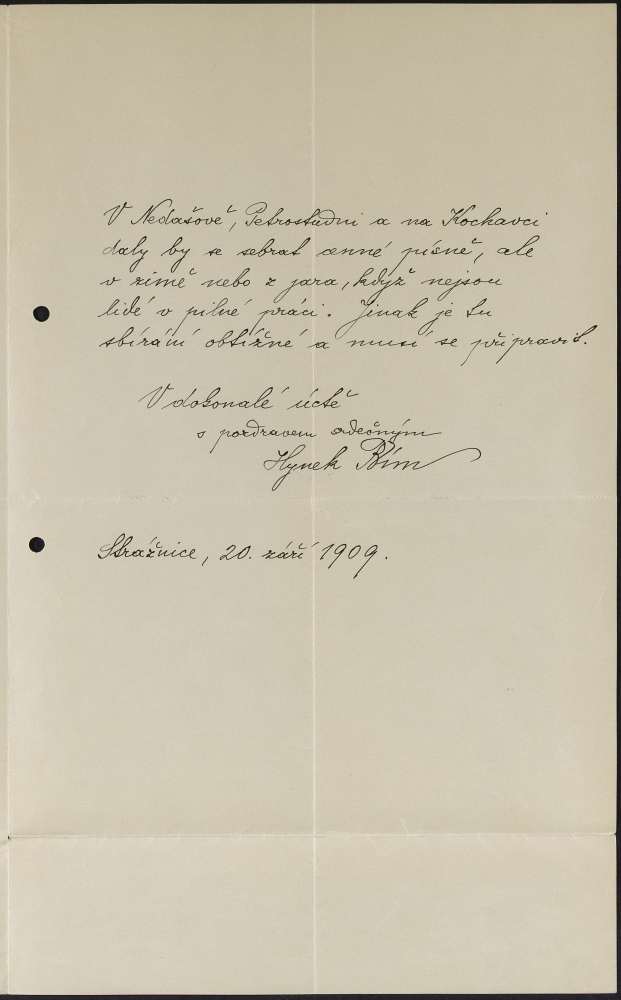 V Nedašově, Petrostudni a na Kochavci
daly by se sebrat cenné písně, ale
v zimě nebo z jara, když nejsou
lidé v pilné práci. Jinak je tu
sbírání obtížné a musí se připravit.
V dokonalé úctě
s pozdravem srdečným
Hynek Bím
Strážnice, 20. září 1909.